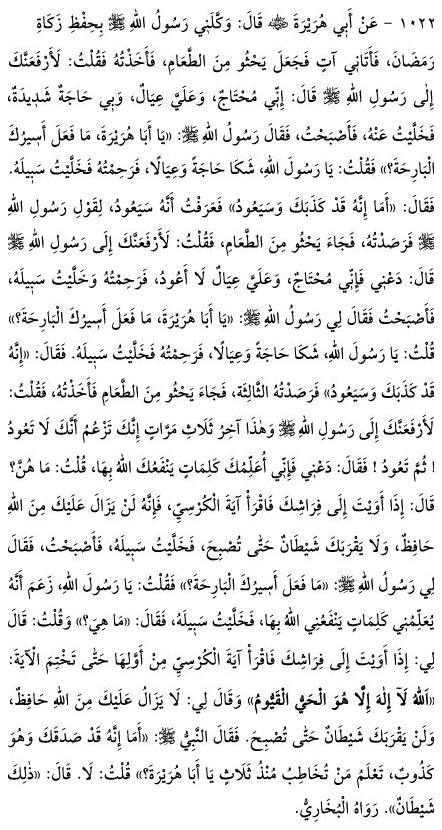 ١٠٢٢ - عَنْ أَبِي هُرَيْرَةَ ﷺ قَالَ: وَكَّلَنِي رَسُولُ اللهِ ﷺ بِحِفْظِ زَكَاةِ
رَمَضَانَ، فَأَتَانِي آتٍ فَجَعَلَ يَحْثُو مِنَ الطَّعَامِ، فَأَخَذْتُهُ فَقُلْتُ: لَأَرْفَعَنَّكَ
إِلَى رَسُولِ اللهِ ﷺ قَالَ: إِنِّي مُحْتَاجٌ، وَعَلَيَّ عِيَالٌ، وَبِي حَاجَةٌ شَدِيدَةٌ،
فَخَلَّيْتُ عَنْهُ، فَأَصْبَحْتُ، فَقَالَ رَسُولُ اللهِ ﷺ: «يَا أَبَا هُرَيْرَةَ، مَا فَعَلَ أَسِيرُكَ
الْبَارِحَةَ؟» فَقُلْتُ: يَا رَسُولَ اللهِ، شَكَا حَاجَةً وَعِيَالًا، فَرَحِمْتُهُ فَخَلَّيْتُ سَبِيلَهُ.
فَقَالَ: «أَمَا إِنَّهُ قَدْ كَذَبَكَ وَسَيَعُودُ» فَعَرَفْتُ أَنَّهُ سَيَعُودُ، لِقَوْلِ رَسُولِ اللهِ
ﷺ فَرَصَدْتُهُ، فَجَاءَ يَحْثُو مِنَ الطَّعَامِ، فَقُلْتُ: لَأَرْفَعَنَّكَ إِلَى رَسُولِ اللهِ ﷺ
قَالَ: دَعْنِي فَإِنِّي مُحْتَاجٌ، وَعَلَيَّ عِيَالٌ لَا أَعُودُ، فَرَحِمْتُهُ وَخَلَّيْتُ سَبِيلَهُ،
فَأَصْبَحْتُ فَقَالَ لِي رَسُولُ اللهِ ﷺ: «يَا أَبَا هُرَيْرَةَ، مَا فَعَلَ أَسِيرُكَ الْبَارِحَةَ؟»
قُلْتُ: يَا رَسُولَ اللهِ، شَكَا حَاجَةً وَعِيَالًا، فَرَحِمْتُهُ فَخَلَّيْتُ سَبِيلَهُ. فَقَالَ: «إِنَّهُ
قَدْ كَذَبَكَ وَسَيَعُودُ» فَرَصَدْتُهُ الثَّالِثَةَ، فَجَاءَ يَحْثُو مِنَ الطَّعَامِ فَأَخَذْتُهُ، فَقُلْتُ:
لَأَرْفَعَنَّكَ إِلَى رَسُولِ اللهِ ﷺ وَهٰذَا آخِرُ ثَلَاثِ مَرَّاتٍ إِنَّكَ تَزْعُمُ أَنَّكَ لَا تَعُودُ
! ثُمَّ تَعُودُ ! فَقَالَ: دَعْنِي فَإِنِّي أُعَلِّمُكَ كَلِمَاتٍ يَنْفَعُكَ اللهُ بِهَا، قُلْتُ: مَا هُنَّ؟
قَالَ: إِذَا أَوَيْتَ إِلَى فِرَاشِكَ فَاقْرَأْ آيَةَ الْكُرْسِيِّ، فَإِنَّهُ لَنْ يَزَالَ عَلَيْكَ مِنَ اللهِ
حَافِظٌ، وَلَا يَقْرَبَكَ شَيْطَانٌ حَتَّى تُصْبِحَ، فَخَلَّيْتُ سَبِيلَهُ، فَأَصْبَحْتُ، فَقَالَ
لِي رَسُولُ اللهِ ﷺ: «مَا فَعَلَ أَسِيرُكَ الْبَارِحَةَ؟» فَقُلْتُ: يَا رَسُولَ اللهِ، زَعَمَ أَنَّهُ
يُعَلِّمُنِي كَلِمَاتٍ يَنْفَعُنِي اللهُ بِهَا، فَخَلَّيْتُ سَبِيلَهُ، فَقَالَ: «مَا هِيَ؟» وَقُلْتُ: قَالَ
لِي: إِذَا أَوَيْتَ إِلَى فِرَاشِكَ فَاقْرَأْ آيَةَ الْكُرْسِيِّ مِنْ أَوَّلِهَا حَتَّى تَخْتِمَ الْآيَةَ:
«اَللهُ لَآ إِلٰهَ إِلَّا هُوَ الْحَيُّ الْقَيُّومُ» وَقَالَ لِي: لَا يَزَالُ عَلَيْكَ مِنَ اللهِ حَافِظٌ،
وَلَنْ يَقْرَبَكَ شَيْطَانٌ حَتَّى تُصْبِحَ. فَقَالَ النَّبِيُّ ﷺ: «أَمَا إِنَّهُ قَدْ صَدَقَكَ وَهُوَ
كَذُوبٌ، تَعْلَمُ مَنْ تُخَاطِبُ مُنْذُ ثَلَاثٍ يَا أَبَا هُرَيْرَةَ؟» قُلْتُ: لَا. قَالَ: «ذٰلِكَ
شَيْطَانٌ». رَوَاهُ الْبُخَارِيُّ.